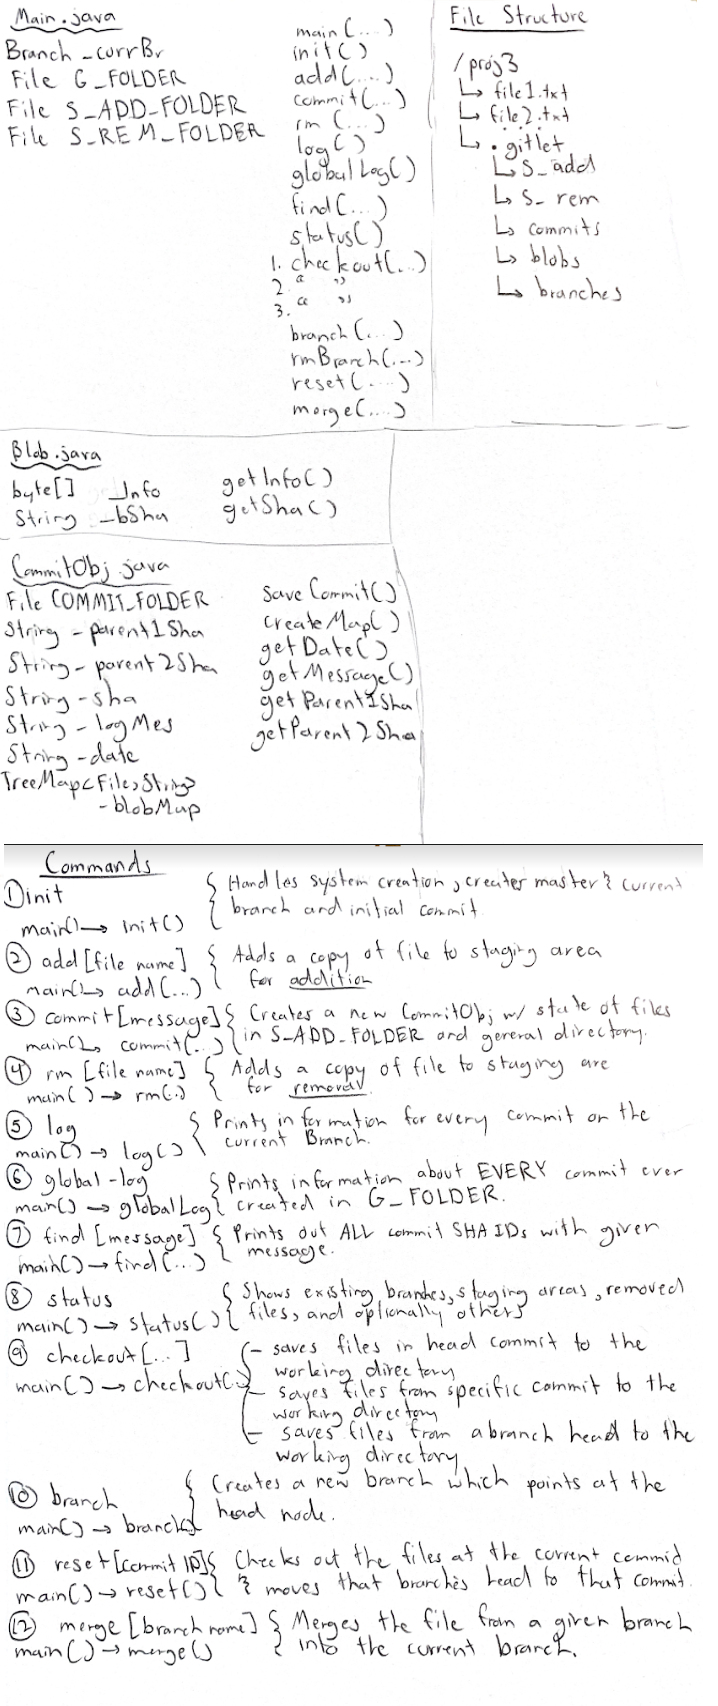 Main.java
Branch _currBr
File G_FOLDER
File S_ADD_FOLDER
File S_REM_FOLDER
main(...)
init()
add(...)
commit(...)
rm(...)
log()
globalLog()
find(...)
status()
1. checkout(...)
2. " "
3. " "
branch(...)
rmBranch(...)
reset(...)
merge(...)
File Structure
/proj3
↳ file1.txt
↳ file2.txt
↳ .gitlet
↳ S_add
↳ S_rem
↳ commits
↳ blobs
↳ branches
Blob.java
byte[] _Info
String _bSha
getInfo()
getSha()
CommitObj.java
File COMMIT_FOLDER
String _parent1Sha
String _parent2Sha
String _sha
String _logMes
String _date
TreeMap<File,String>
_blobMap
saveCommit()
createMap()
getDate()
getMessage()
getParent1Sha
getParent2Sha
Commands
① init
main() → init()
{ Handles system creation, creates master & current
branch and initial commit.
② add [file name]
main() ↳ add(...)
{ Adds a copy of file to staging area
for addition
③ commit [message]
main() ↳ commit(...)
{ Creates a new CommitObj w/ state of files
in S_ADD_FOLDER and general directory.
④ rm [file name]
main() → rm(.)
{ Adds a copy of file to staging are
for removal
⑤ log
main() → log()
{ Prints information for every commit on the
current Branch.
⑥ global-log
main() → globalLog
{ Prints information about EVERY commit ever
created in G_FOLDER.
⑦ find [message]
main() → find(...)
{ Prints out ALL commit SHA IDs with given
message.
⑧ status
main() → status()
{ Shows existing branches, staging areas, removed
files, and optionally others
⑨ checkout [...]
main() → checkout(..)
- saves files in head commit to the
working directory
- saves files from specific commit to the
working directory
- saves files from a branch head to the
working directory
⑩ branch
main() → branch()
{ Creates a new branch which points at the
head node.
⑪ reset [commit ID]
main() → reset()
{ Checks out the files at the current commid
& moves that branches head to that commit.
⑫ merge [branch name]
main() → merge()
{ Merges the file from a given branch
into the current branch.